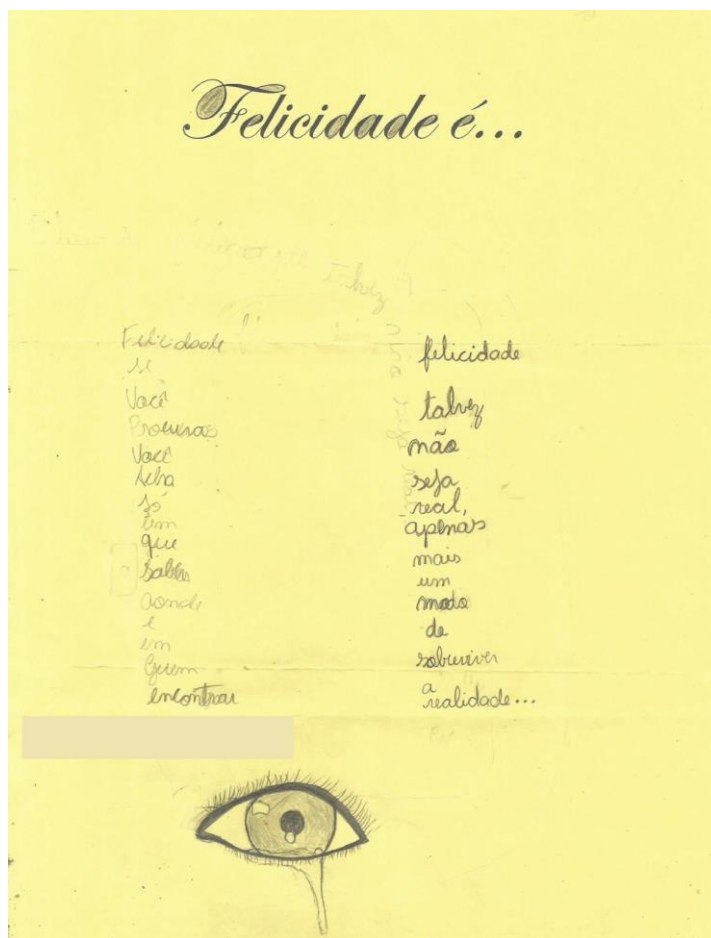 Felicidade é...
talvez
não seja real
Felicidade
se
Você
Procurar
Você
Acha
só
tem
que
saber
aonde
e
em
Quem
encontrar
felicidade
talvez
não
seja
real,
apenas
mais
um
modo
de
sobreviver
a
realidade...